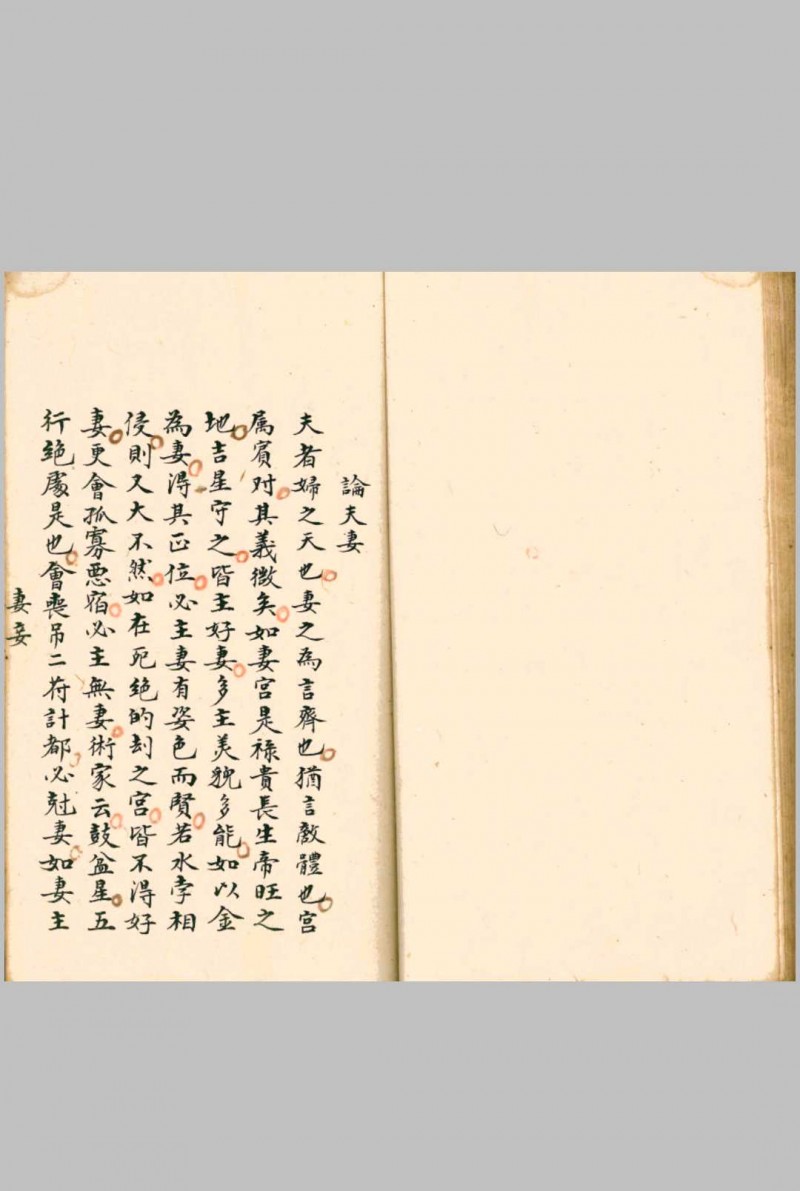 論夫妻
夫者婦之天也妻之為言齊也猶言敵體也宮
属賓对其義微矣如妻宮是祿貴長生帝旺之
地吉星守之皆主好妻多主美貌多能如以金
為妻得其正位必主妻有姿色而賢若水孛相
侵則又大不然如在死絕的刦之宮皆不得好
妻更會孤寡悪宿必主無妻術家云鼓盆星五
行絕處是也會喪吊二符計都必尅妻如妻主
妻妾